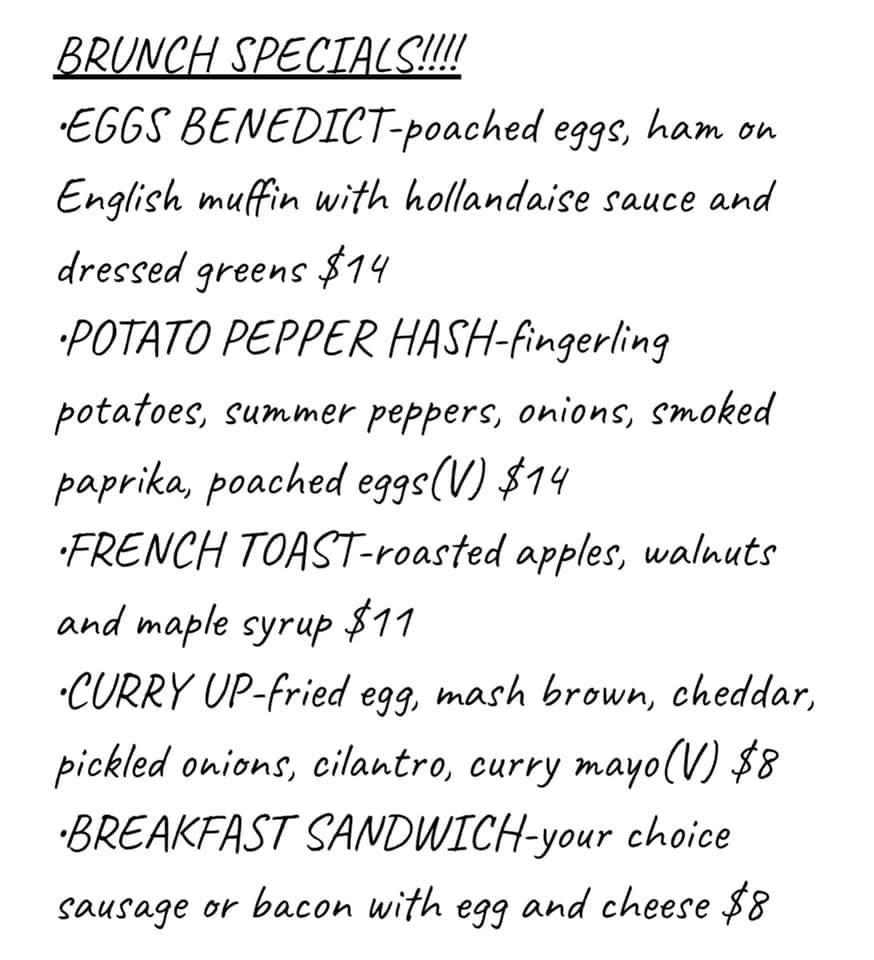 BRUNCH SPECIALS!!!!
•EGGS BENEDICT-poached eggs, ham on
English muffin with hollandaise sauce and
dressed greens $14
•POTATO PEPPER HASH-fingerling
potatoes, summer peppers, onions, smoked
paprika, poached eggs(V) $14
•FRENCH TOAST-roasted apples, walnuts
and maple syrup $11
•CURRY UP-fried egg, mash brown, cheddar,
pickled onions, cilantro, curry mayo(V) $8
•BREAKFAST SANDWICH-your choice
sausage or bacon with egg and cheese $8